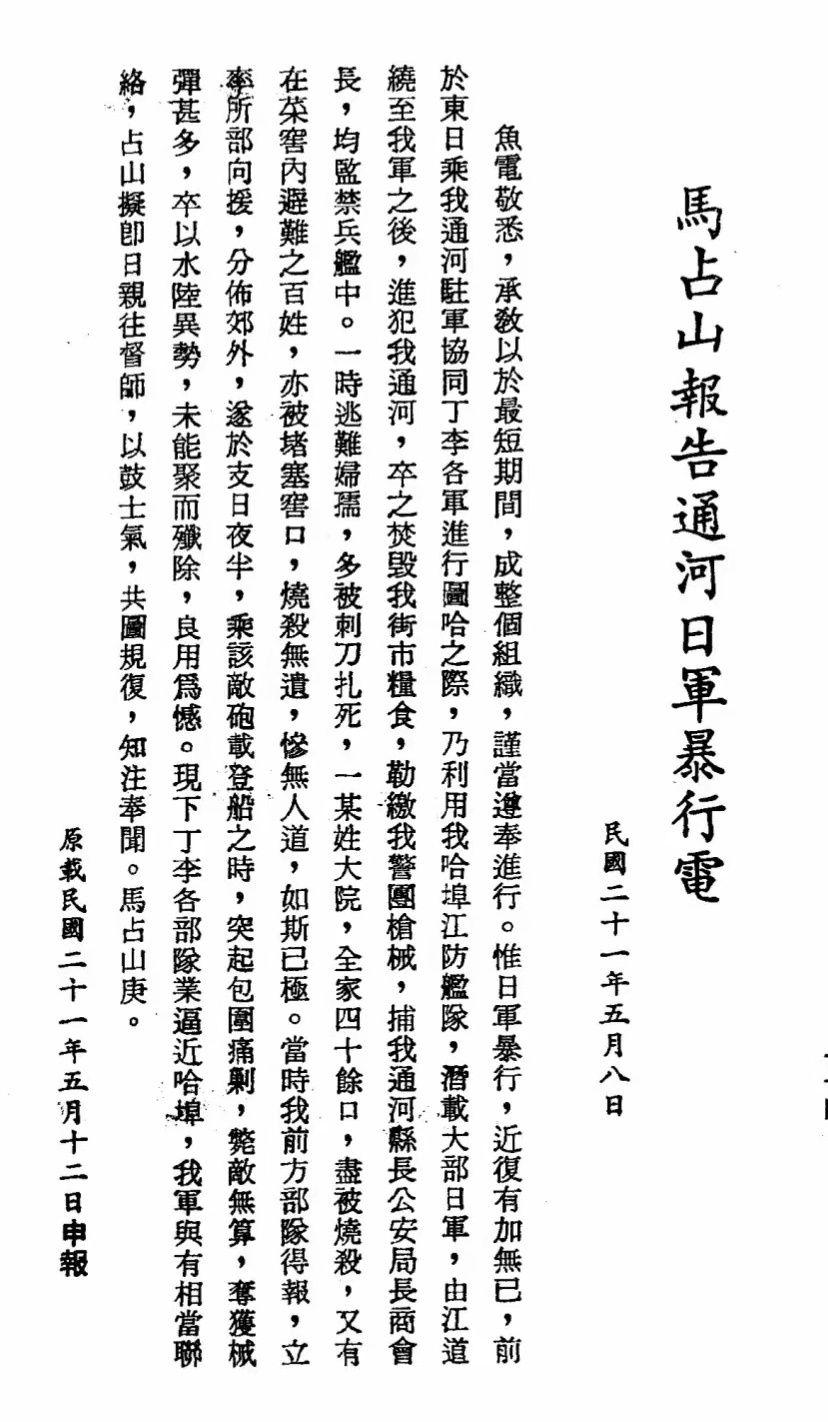 馬占山報告通河日軍暴行電
民國二十一年五月八日
魚電敬悉，承敎以於最短期間，成整個組織，謹當遵奉進行。惟日軍暴行，近復有加無已，前
於東日乘我通河駐軍協同丁李各軍進行圖哈之際，乃利用我哈埠江防艦隊，潛載大部日軍，由江道
繞至我軍之後，進犯我通河，卒之焚毀我街市糧食，勒繳我警團槍械，捕我通河縣長公安局長商會
長，均監禁兵艦中。一時逃難婦孺，多被刺刀扎死，一某姓大院，全家四十餘口，盡被燒殺，又有
在菜窖內避難之百姓，亦被堵塞窖口，燒殺無遺，慘無人道，如斯已極。當時我前方部隊得報，立
率所部向援，分佈郊外，遂於支日夜半，乘該敵砲載登船之時，突起包圍痛剿，斃敵無算，奪獲械
彈甚多，卒以水陸異勢，未能聚而殲除，良用爲憾。現下丁李各部隊業逼近哈埠，我軍與有相當聯
絡，占山擬卽日親往督師，以鼓士氣，共圖規復，知注奉聞。馬占山庚。
原載民國二十一年五月十二日申報